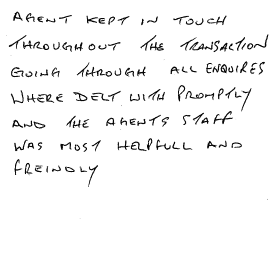 AGENT KEPT IN TOUCH
THROUGHOUT THE TRANSACTION
GOING THROUGH ALL ENQUIRES
WHERE DELT WITH PROMPTLY
AND THE AGENTS STAFF
WAS MOST HELPFULL AND
FREINDLY